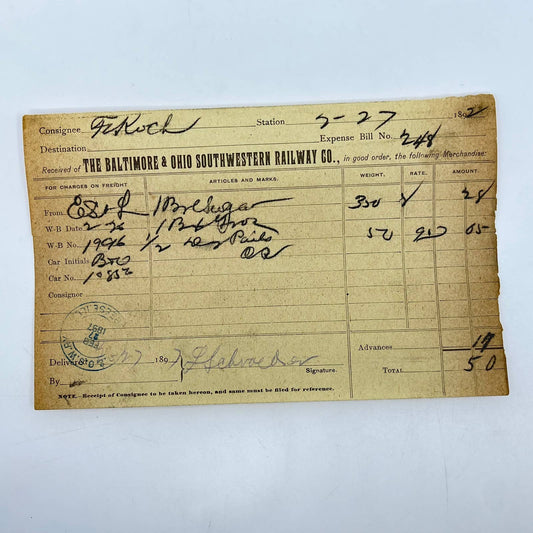 Consignee Fr Koch Station 2-27 189
Destination Expense Bill No. 248
Received of THE BALTIMORE & OHIO SOUTHWESTERN RAILWAY CO., in good order, the following Merchandise:
FOR CHARGES ON FREIGHT. ARTICLES AND MARKS. WEIGHT. RATE. AMOUNT
From E St L 1 Brl Sugar 350 8 28
W-B Date 2-26 1 Bx 50 05
W-B No. 19946 1/2 Dz Pails
Car Initials B&O
Car No.
Consignor
Delivered 2/27 189 7 Schroeder Advances 17
By Signature. TOTAL 50
NOTE.—Receipt of Consignee to be taken hereon, and same must be filed for reference.
B. & O. S. W. RY.
FEB 27 1897